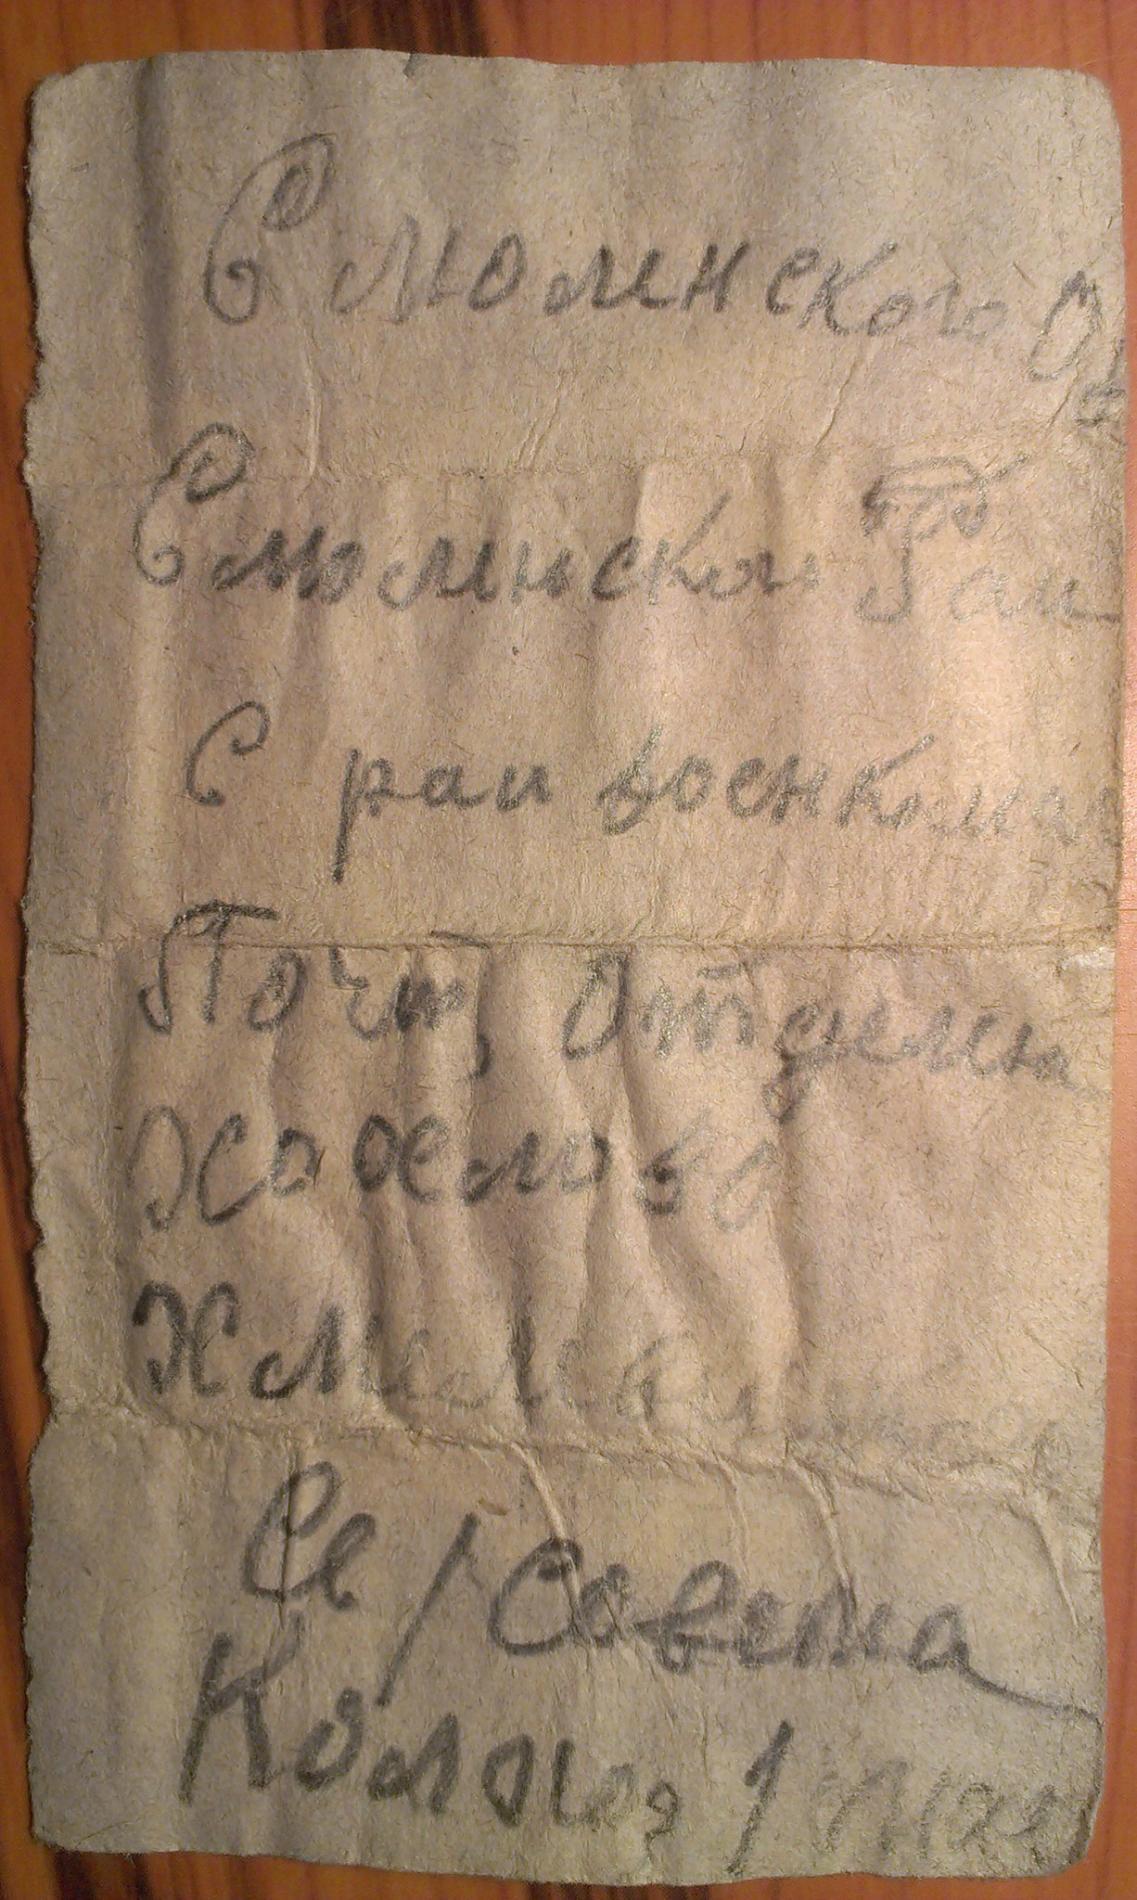 Смоленского
Смоленского
С рай военкома
Почт, Отделен
Ходолово
Се / Совета
Колхоз 1 мая